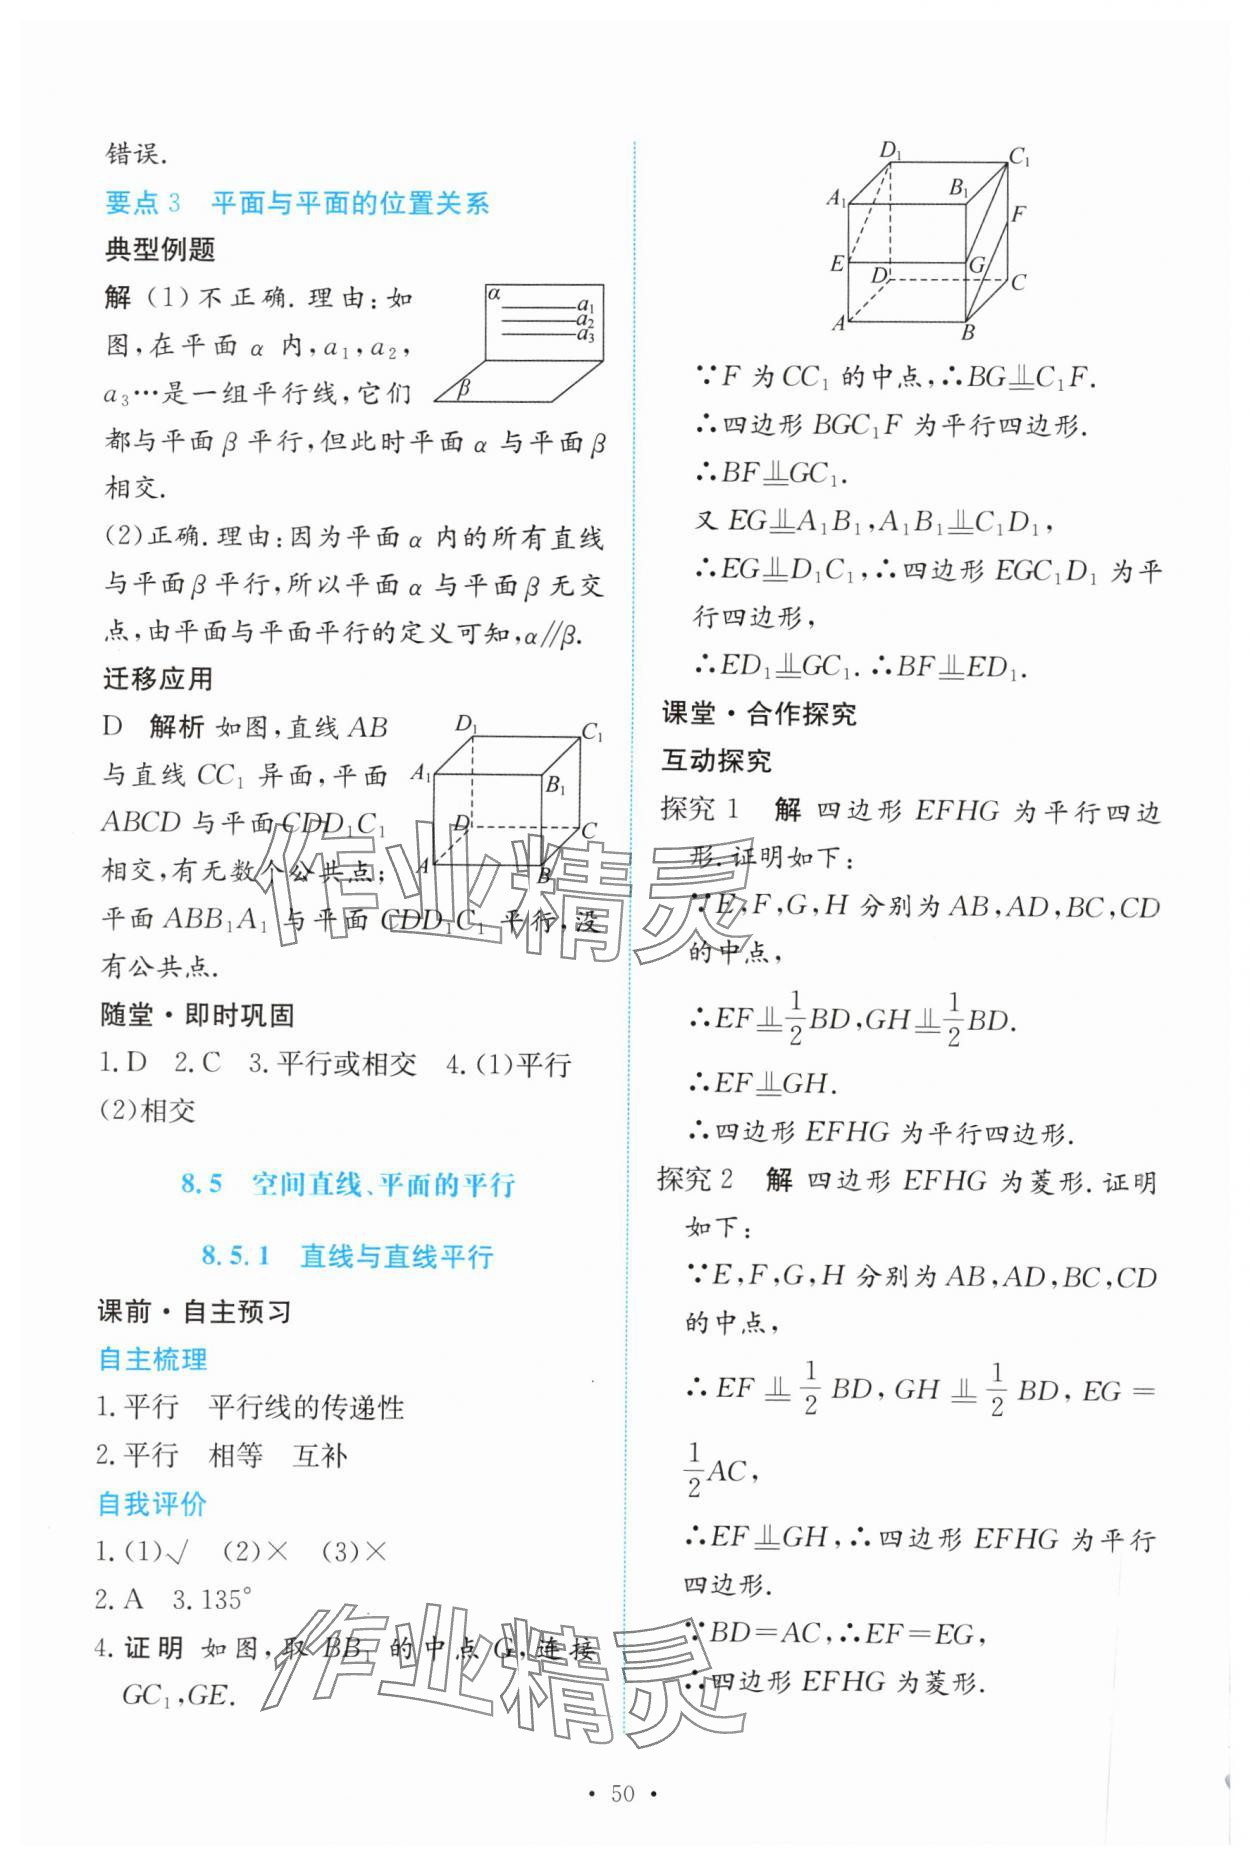 错误.
要点 3 平面与平面的位置关系
典型例题
解 (1)不正确.理由:如
图,在平面 α 内,a₁,a₂,
a₃…是一组平行线,它们
都与平面 β 平行,但此时平面 α 与平面 β
相交.
α
a₁
a₂
a₃
β
(2)正确.理由:因为平面 α 内的所有直线
与平面 β 平行,所以平面 α 与平面 β 无交
点,由平面与平面平行的定义可知,α//β.
迁移应用
D 解析 如图,直线 AB
与直线 CC₁ 异面,平面
ABCD 与平面 CDD₁C₁
相交,有无数个公共点;
平面 ABB₁A₁ 与平面 CDD₁C₁ 平行,没
有公共点.
D₁
C₁
A₁
B₁
D
C
A
B
随堂·即时巩固
1.D 2.C 3.平行或相交 4.(1)平行
(2)相交
8.5 空间直线、平面的平行
8.5.1 直线与直线平行
课前·自主预习
自主梳理
1.平行 平行线的传递性
2.平行 相等 互补
自我评价
1.(1)√ (2)× (3)×
2.A 3.135°
4.证明 如图,取 BB₁ 的中点 G,连接
GC₁,GE.
D₁
C₁
A₁
B₁
F
E
G
D
C
A
B
∵F 为 CC₁ 的中点,∴BG⊥⊥C₁F.
∴四边形 BGC₁F 为平行四边形.
∴BF⊥⊥GC₁.
又 EG⊥⊥A₁B₁,A₁B₁⊥⊥C₁D₁,
∴EG⊥⊥D₁C₁,∴四边形 EGC₁D₁ 为平
行四边形,
∴ED₁⊥⊥GC₁.∴BF⊥⊥ED₁.
课堂·合作探究
互动探究
探究 1 解 四边形 EFHG 为平行四边
形.证明如下:
∵E,F,G,H 分别为 AB,AD,BC,CD
的中点,
∴EF⊥⊥1/2BD,GH⊥⊥1/2BD.
∴EF⊥⊥GH.
∴四边形 EFHG 为平行四边形.
探究 2 解 四边形 EFHG 为菱形.证明
如下:
∵E,F,G,H 分别为 AB,AD,BC,CD
的中点,
∴EF⊥⊥1/2BD,GH⊥⊥1/2BD,EG=
1/2AC,
∴EF⊥⊥GH,∴四边形 EFHG 为平行
四边形.
∵BD=AC,∴EF=EG,
∴四边形 EFHG 为菱形.
作业精灵
作业精灵
· 50 ·